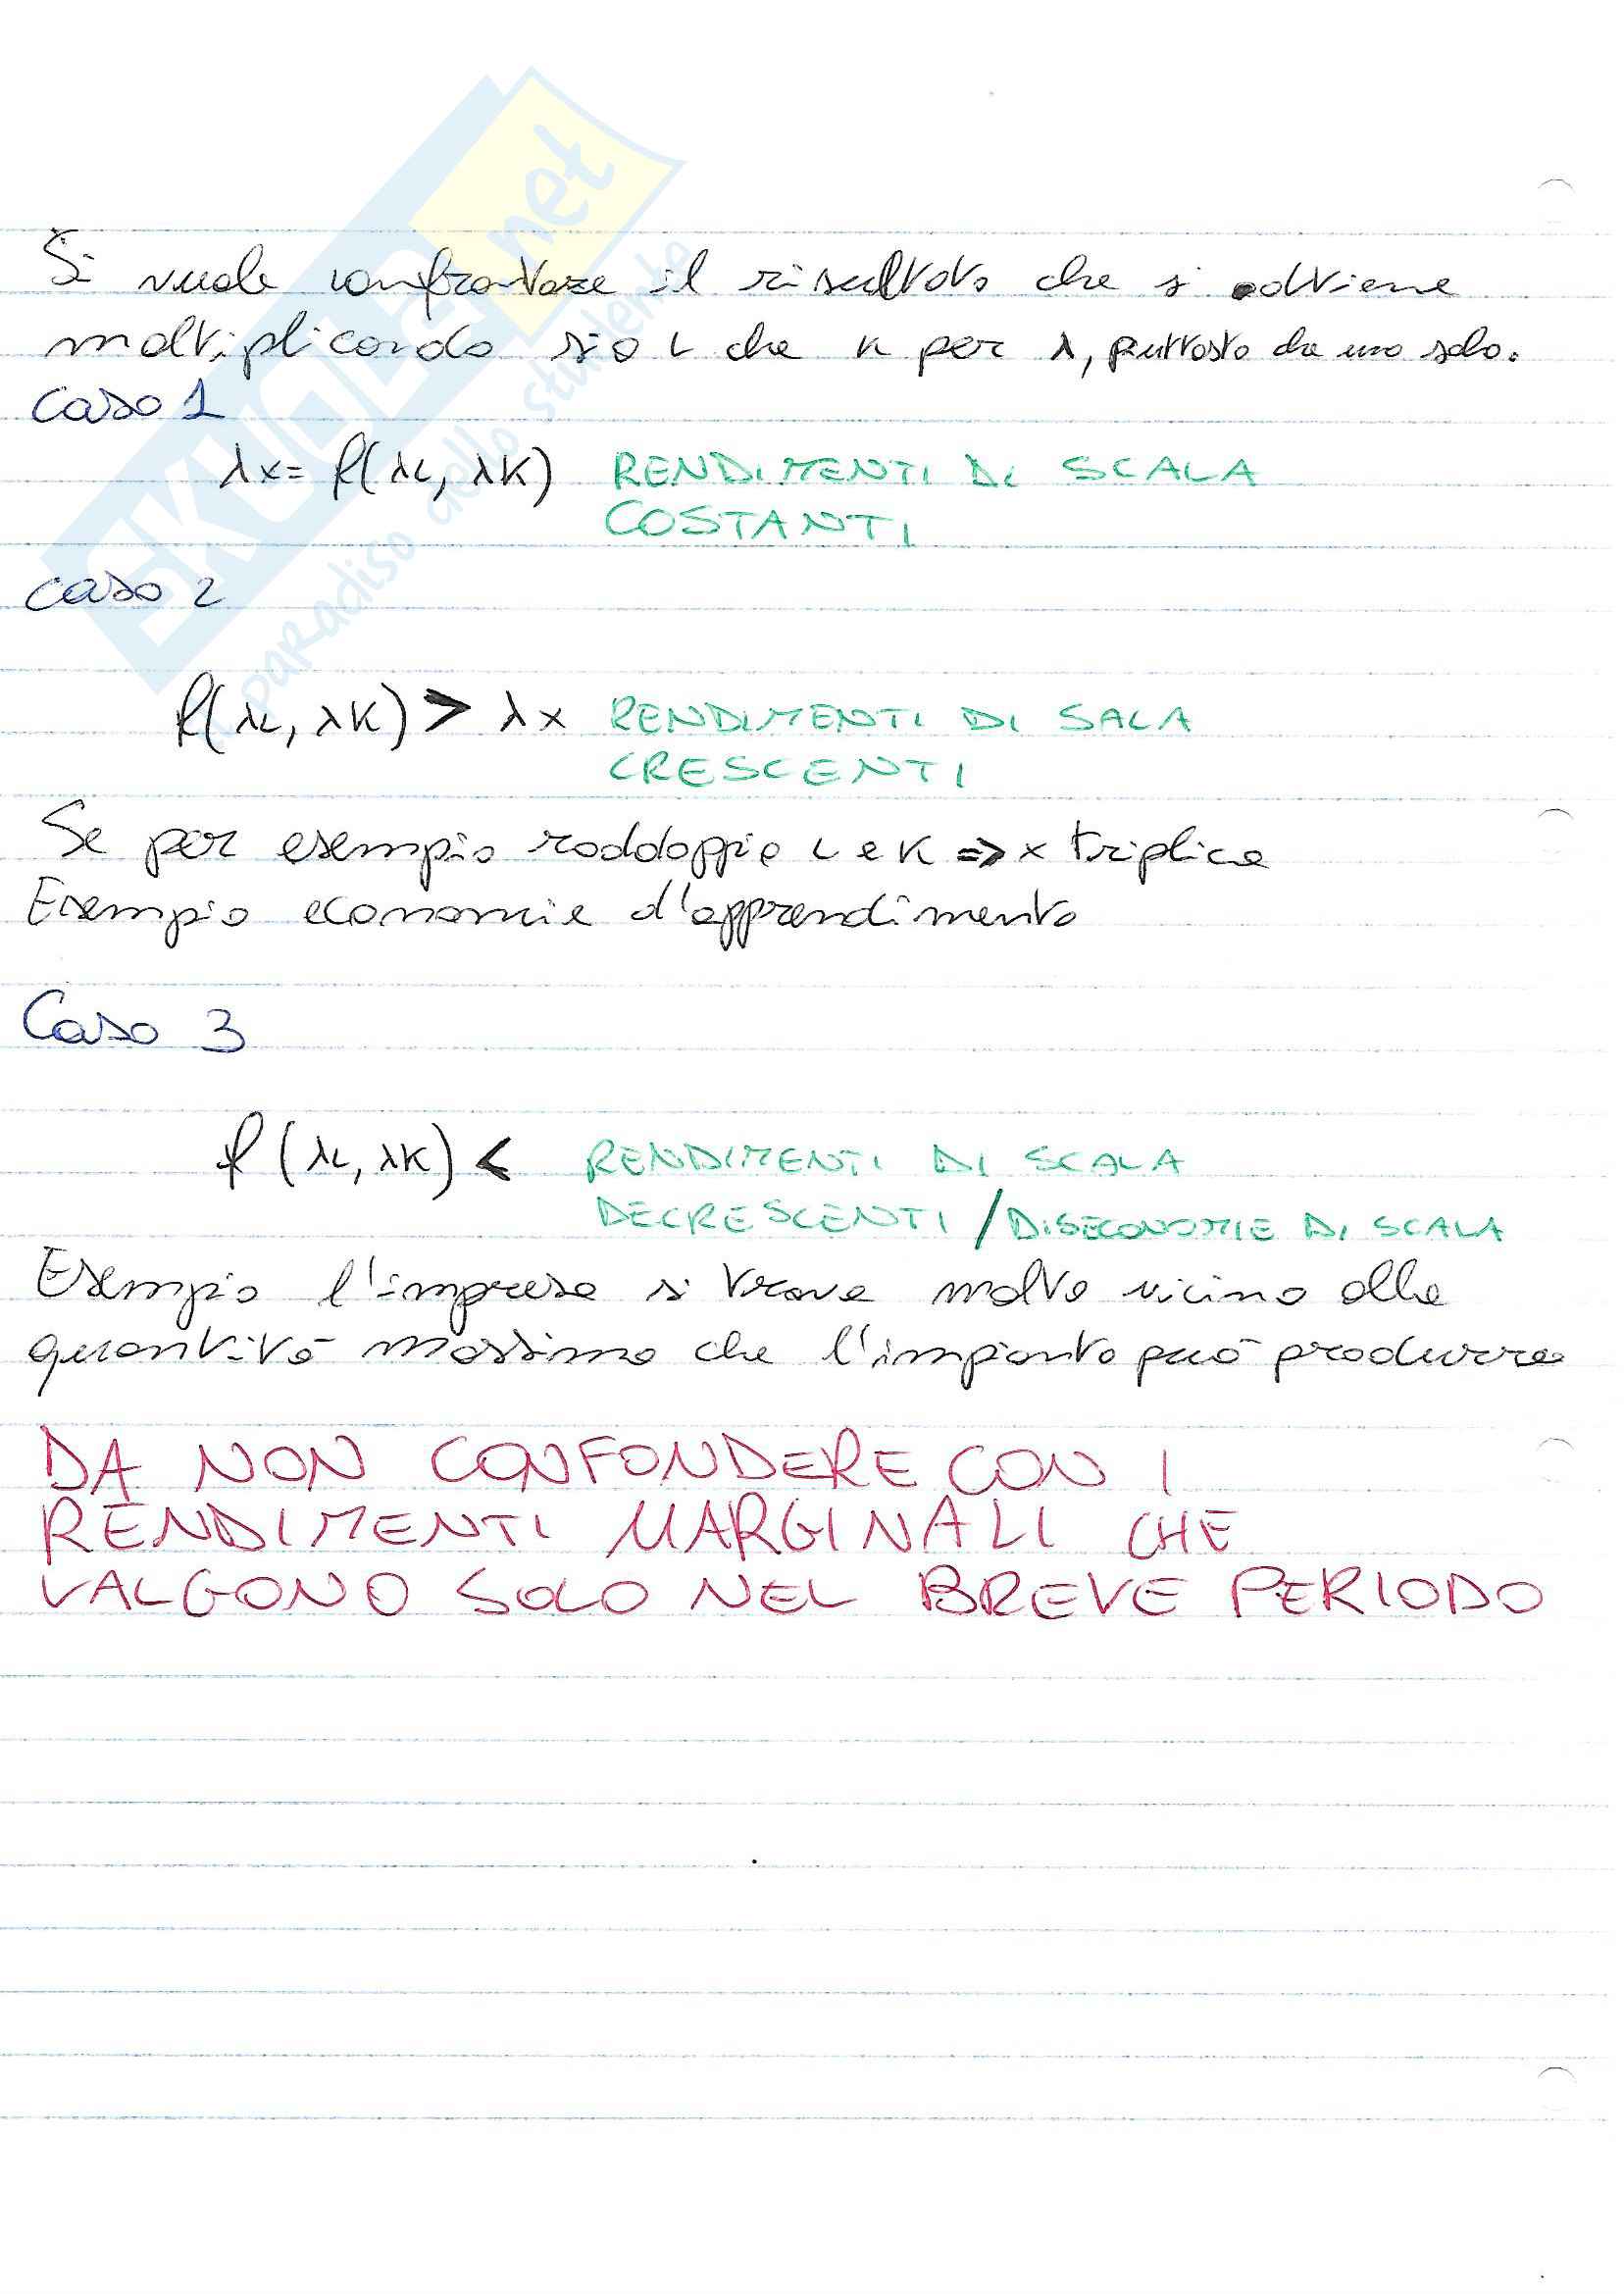 SKUOLA.net
paradiso dello studente
Si vuole confrontare il risultato che si ottiene
moltiplicando sia L che K per λ, piuttosto che uno solo.
Caso 1
λx = f(λL, λK) RENDIMENTI DI SCALA
COSTANTI
caso 2
f(λL, λK) > λx RENDIMENTI DI SALA
CRESCENTI
Se per esempio raddoppio L e K => x triplica
Esempio economie d'apprendimento
Caso 3
f(λL, λK) < RENDIMENTI DI SCALA
DECRESCENTI / DISECONOMIE DI SCALA
Esempio l'impresa si trova molto vicino alla
quantità massima che l'impianto può produrre
DA NON CONFONDERE CON I
RENDIMENTI MARGINALI CHE
VALGONO SOLO NEL BREVE PERIODO